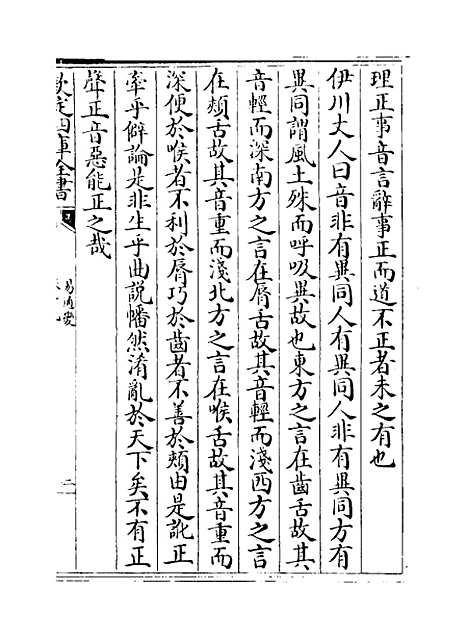 理正事音言辭事正而道不正者未之有也
伊川丈人曰音非有異同人有異同人非有異同方有
異同謂風土殊而呼吸異故也東方之言在齒舌故其
音輕而深南方之言在脣舌故其音輕而淺西方之言
在頰舌故其音重而淺北方之言在喉舌故其音重而
深便於喉者不利於脣巧於齒者不善於頰由是訛正
牽乎僻論是非生乎曲說幡然淆亂於天下矣不有正
聲正音惡能正之哉
欽定四庫全書
易通變
二